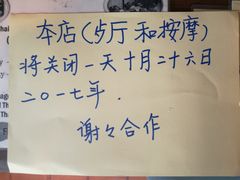 本店(歺厅 和按摩)
将关闭一天十月二十六日
二〇一七年.
谢々合作